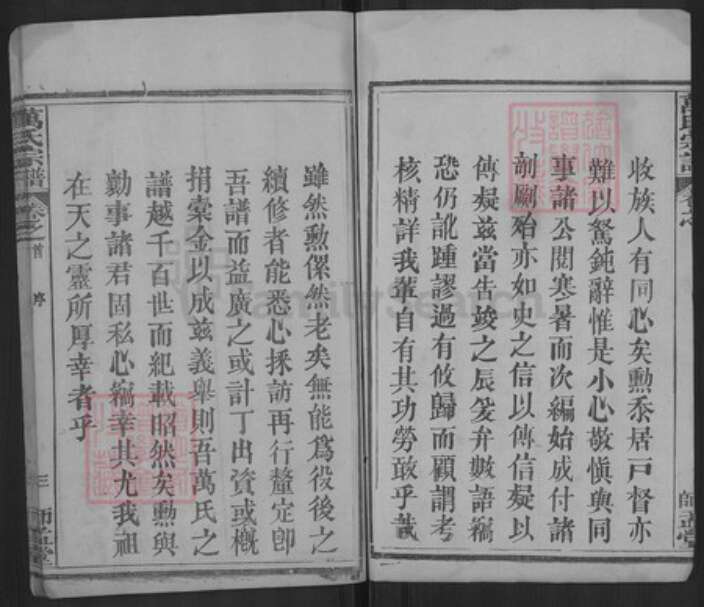 收族人有同心矣勲忝居戸督亦
難以駑鈍辭惟是小心敬慎與同
事諸公閲寒暑而次編始成付諸
剞劂殆亦如史之信以傳信疑以
傳疑兹當告竣之辰爰弁數語編
恐仍訛踵謬過有攸歸而顧謂考
核精詳我輩自有其功勞敢乎哉
萬氏宗譜
卷之首
序
三
師孟堂
雖然勲傫然老矣無能爲役後之
續修者能悉心採訪再行釐定卽
吾譜而益廣之或計丁出資或槪
捐橐金以成兹義舉則吾萬氏之
譜越千百世而紀載昭然矣勲與
勷事諸君固私心竊幸其尤我祖
在天之靈所厚幸者乎
FamilySearch